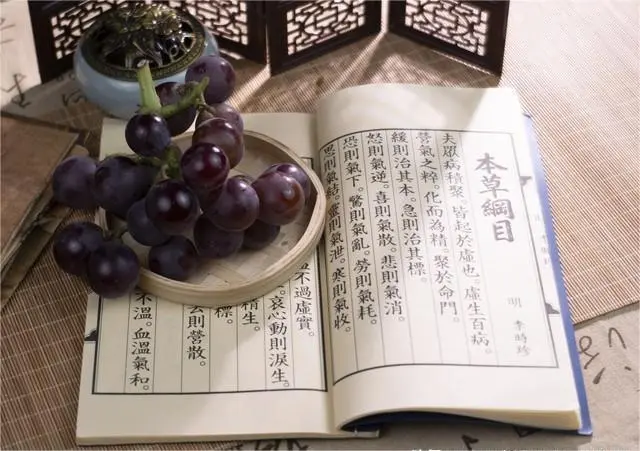 本草綱目
明 李時珍
夫眾病積聚。皆起於虛也。虛生百病。
營氣之粹。化而為精。聚於命門。
緩則治其本。急則治其標。
怒則氣逆。喜則氣散。悲則氣消。
恐則氣下。驚則氣亂。勞則氣耗。
思則氣結。炅則氣泄。寒則氣收。
不過虛實。
哀心動則淚生。
精生。
標。
則營散。
不溫。血溫氣和。